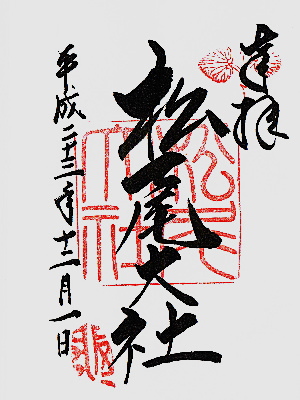 奉拝
松尾大社
平成二十三年十二月一日
松尾
大社